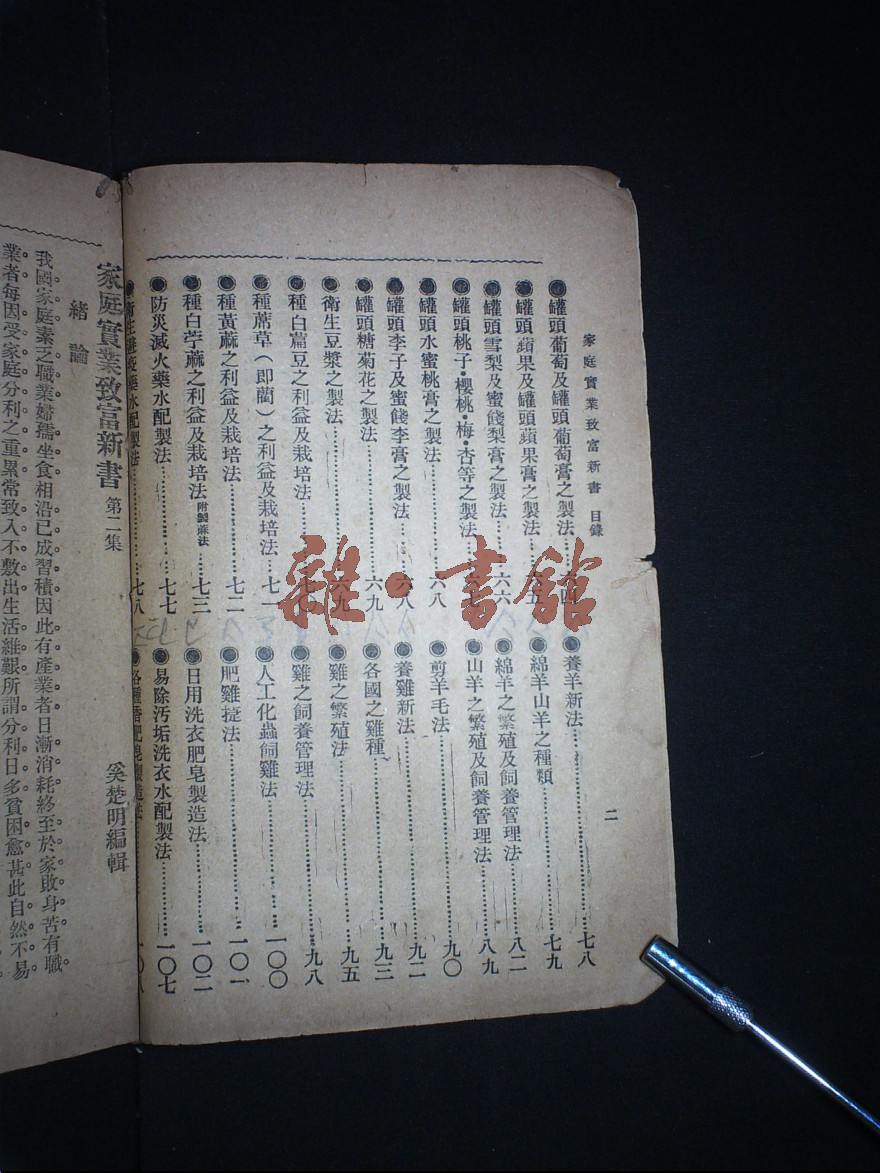 家庭實業致富新書　目錄
二
●罐頭葡萄及罐頭葡萄膏之製法……四
●罐頭蘋果及罐頭蘋果膏之製法……五
●罐頭雪梨及蜜餞梨膏之製法……六六
●罐頭桃子・櫻桃・梅・杏等之製法……
●罐頭水蜜桃膏之製法……六八
●罐頭李子及蜜餞李膏之製法……六八
●罐頭糖菊花之製法……六九
●衛生豆漿之製法……六九
●種白藊豆之利益及栽培法……
●種蓆草（即藺）之利益及栽培法……七一
●種黃蔴之利益及栽培法……七二
●種白苧蔴之利益及栽培法附製蔴法……七三
●防災滅火藥水配製法……七七
●衛生避疫藥水配製法……七八
●養羊新法……七八
●綿羊山羊之種類……七九
●綿羊之繁殖及飼養管理法……八二
●山羊之繁殖及飼養管理法……八九
●剪羊毛法……九〇
●養雞新法……九二
●各國之雞種……九三
●雞之繁殖法……九五
●雞之飼養管理法……九八
●人工化蟲飼雞法……一〇〇
●肥雞捷法……一〇一
●日用洗衣肥皂製造法……一〇二
●易除汚垢洗衣水配製法……一〇七
●各種香肥皂製造法……一〇八
雜・書館
家庭實業致富新書　第二集
奚楚明編輯
緒論
我國家庭素乏職業婦孺坐食相沿已成習積因此有產業者日漸消耗終至於家敗身苦有職
業者每因受家庭分利之重累常致入不敷出生活維艱所謂分利日多貧困愈甚此自然不易